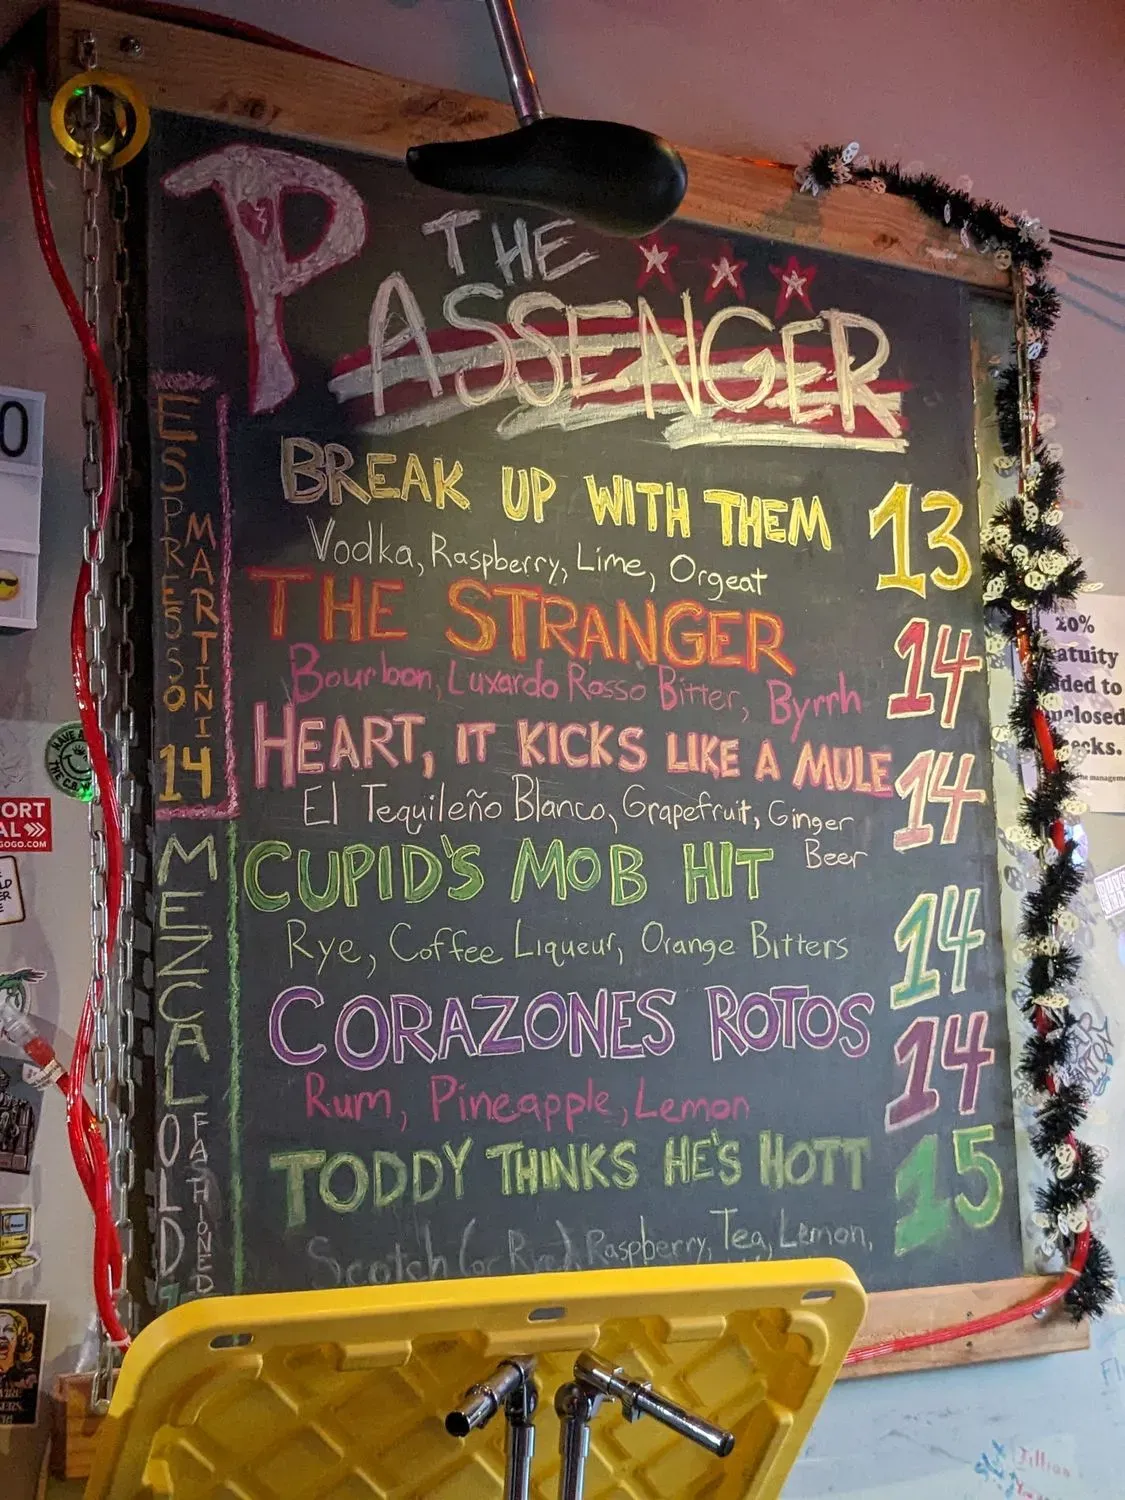 THE
PASSENGER
BREAK UP WITH THEM 13
Vodka, Raspberry, Lime, Orgeat
THE STRANGER 14
Bourbon, Luxardo Rosso Bitter, Byrrh
HEART, IT KICKS LIKE A MULE 14
El Tequileño Blanco, Grapefruit, Ginger
Beer
CUPID'S MOB HIT 14
Rye, Coffee Liqueur, Orange Bitters
CORAZONES ROTOS 14
Rum, Pineapple, Lemon
TODDY THINKS HE'S HOTT 15
Scotch (or Rye), Raspberry, Tea, Lemon,
ESPRESSO
MARTINI
14
MEZCAL
OLD
FASHIONED
P
0
20%
atuity
ded to
closed
ecks.
the management
ORT
AL
GOGO.COM